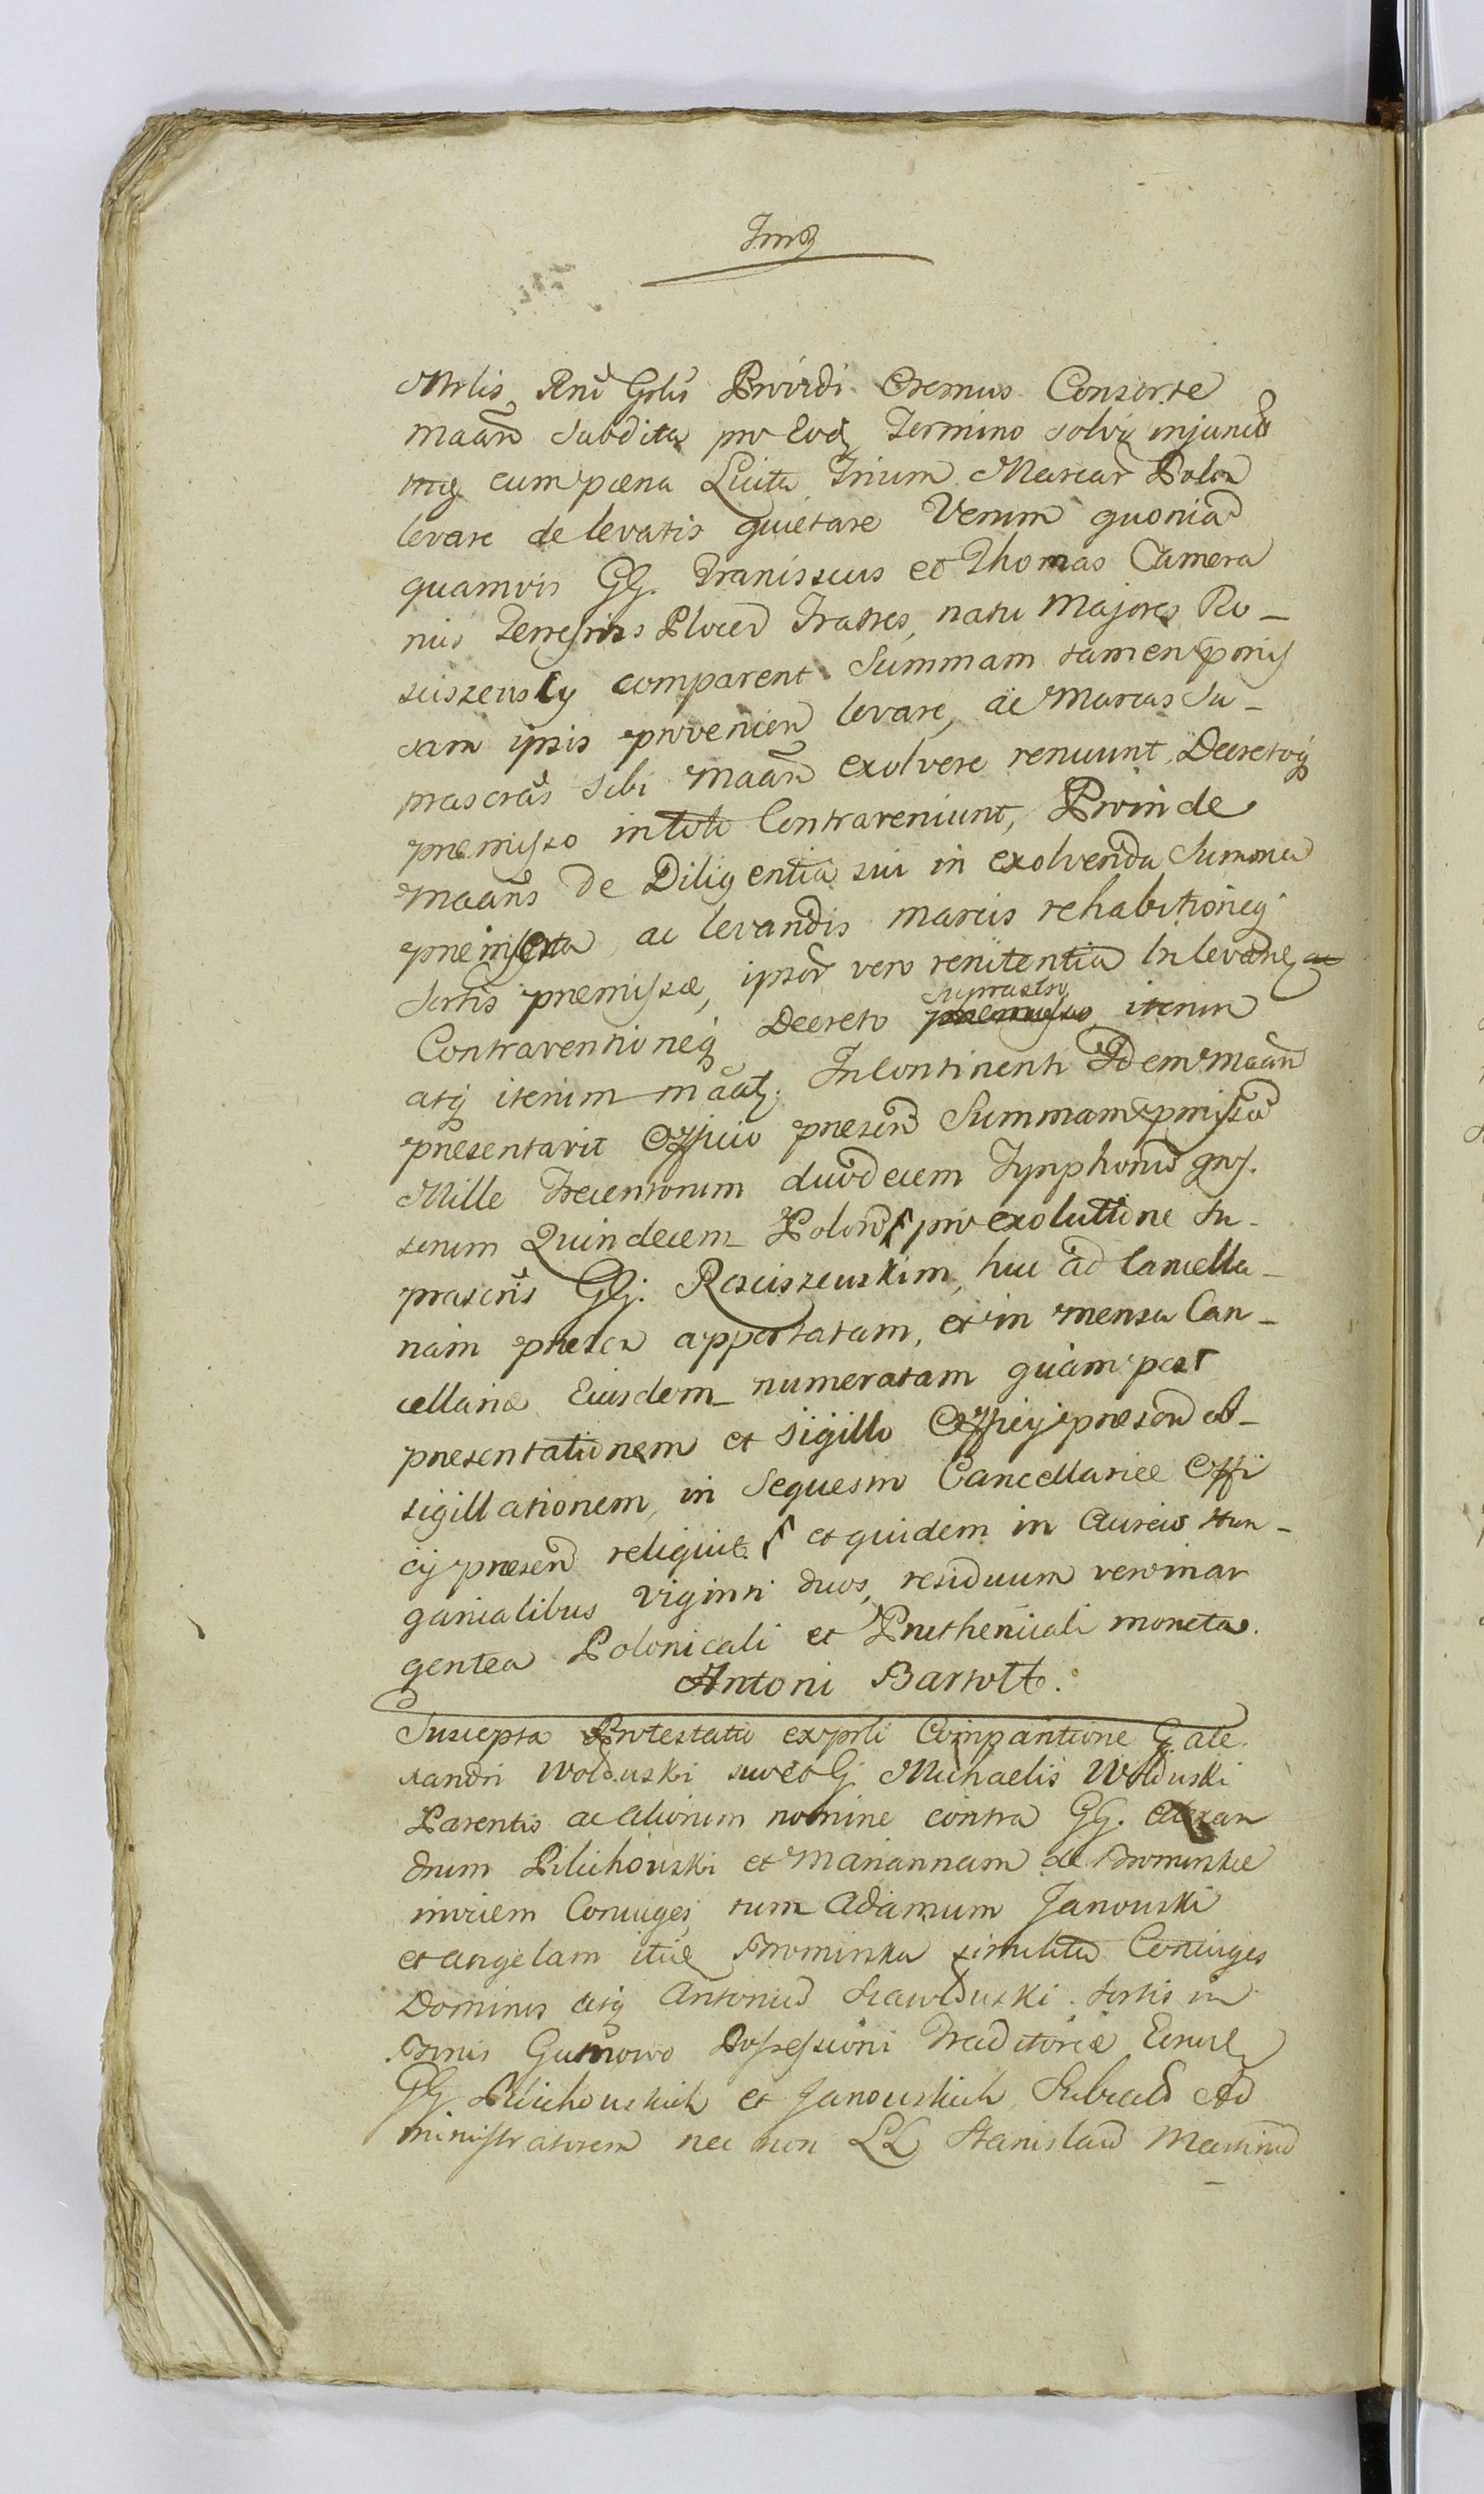 Imẜ
Mrlis Rnı Grlis Providi Cremus Consorte
maan subdita pro Eod Termino solvi injunct
mg cum pæna Luita Trium Marcar Polon
levare de levatis quietare Verum quonia
quamvis GG. Franiscus et Thomas Camera
rius Terrestris Plocen Fratres, natu Majores Ro-
sciszewscy comparent Summam tamen pmis
sam ipsis provenien levare, ac Marcas su-
prascras sibi maan exolvere renuunt, Decretoq
premisso in toto Contraveniunt, Proinde
maans de Diligentia sui in exolvenda Summa
premissa ac levandis marcis rehabitioneq
sortis premissæ, ipsor vero renitentia in levane
Contraventioneq Decreto suprascro iterum
atq iterum maatq. Incontinenti Idem maan
presentavit Officio presen Summam pmissa
Mille Trecentorum duodecem Tynphonu gros.
sorum Quindecem Polon pro exolutione su-
prascris GG. Rosciszewskim, huc ad Cancella-
riam presen apportatam, et in mensa Can-
cellariæ Eiusdem numeratam quam post
presentationem et sigillo Officij presen ob-
sigillationem, in Sequestro Cancellariæ Offi
cij presen reliquit et quidem in Aureis Hun-
garicalibus viginti duos, residuum vero in ar
gentea Polonicali et Pruthenicali moneta.
Antoni Bartolt.
Suscepta Protestatio ex prli Comparitione G. Ale
xandri Wolduski suo et G. Michaelis Wolduski
Parentis ac aliorum nomine contra GG. Alexan
drum Pilichowski et Mariannam de Srominskie
invicem Coniuges tum Adamum Janowski
et Angelam itidem Srominska similiter Coniuges
Dominos atq Antoniu Scawduski sortis in
Bonis Gutnowo Possessioni Traditoriæ Earund
GG Pilichowskich et Janowskich Subiecta Ad
ministratorem nec non LL Stanislau Martinu